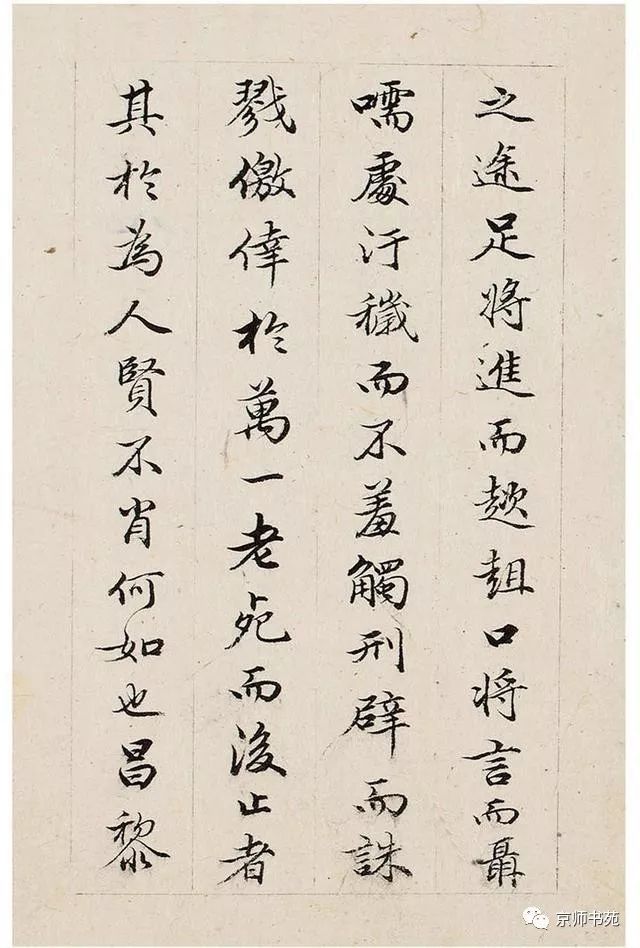 之途足將進而趑趄口將言而聶
嚅處汙穢而不羞觸刑辟而誅
戮儌倖於萬一老死而後止者
其於為人賢不肖何如也昌黎
京师书苑